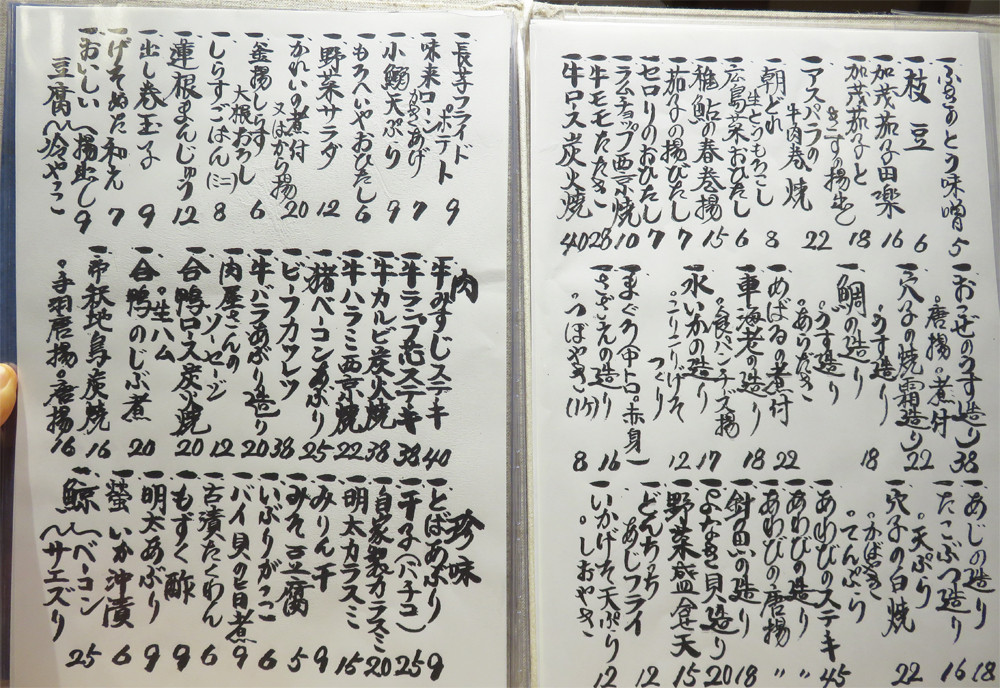 一ふきのとう味噌 5
一枝豆 6
一加茂茄子田楽 16
一加茂茄子と
きすの揚生 18
一アスパラの
牛肉巻焼 22
一朝どれ
生とうもろこし 8
一広島菜おひたし 6
一稚鮎の春巻揚 15
一茄子の揚びたし 7
一セロリのおひたし 7
一ラムチョップ西京焼 10
一牛モモたたき 28
一牛ロース炭火焼 40
一おこぜのうす造り 38
。唐揚。煮付
一穴子の焼霜造り 22
。うす造り
一鯛の造り 18
。うす造り
。ありだき
一めばるの煮付 22
一車海老の造り 18
。食パンチーズ揚 17
一水いかの造り 12
。こりこりげそ
つくり
一まぐろ(中トロ。赤身)
一さざえの造り 16
。つぼやき(1ケ) 8
一あじの造り 18
一たこぶつ造り 16
。天ぷら
一穴子の白焼 22
。かばやき
。てんぷら
一あわびのステキ 45
一あわびの造り 〃
一あわびの唐揚 〃
一針魚の造り 18
一よなき貝造り 20
一野菜盛合天 15
一どんちっち
あじフライ 12
一いかげそ天ぷら 12
。しおやき
一長芋フライド
ポテト 9
一味来コーン
かきあげ 7
一小鰯天ぷら 9
一もろへいやおひたし 6
一野菜サラダ 12
一かれいの煮付
又はから揚 20
一釜揚しらす
大根おろし 6
一しらすごはん(ミニ) 8
一蓮根まんじゅう 12
一出し巻玉子 9
一げそぬた和え 7
一おいしい
豆腐〜揚出し 9
〜冷やっこ
肉
一牛みすじステキ 40
一牛ランプ缶ステキ 38
一牛カルビ炭火焼 38
一牛ハラミ西京焼 22
一猪ベーコンあぶり 25
一ビーフカツレツ 38
一牛バラあぶり造り 20
一肉屋さんの
ソーセージ 12
一合鴨ロース炭火焼 20
一合鴨のじぶ煮 20
。生ハム
一希秋地鳥炭焼 16
。手羽唐揚。唐揚 16
珍味
一とばあぶり 9
一干子(バチコ) 25
一自家製カラスミ 20
一明太カラスミ 15
一みりん干 9
一みそ豆腐 5
一いぶりがっこ 6
一バイ貝の旨煮 9
一古漬たくわん 6
一もずく酢 9
一明太あぶり 9
一蛍いか沖漬 6
一鯨〜ベーコン 25
〜サエズリ